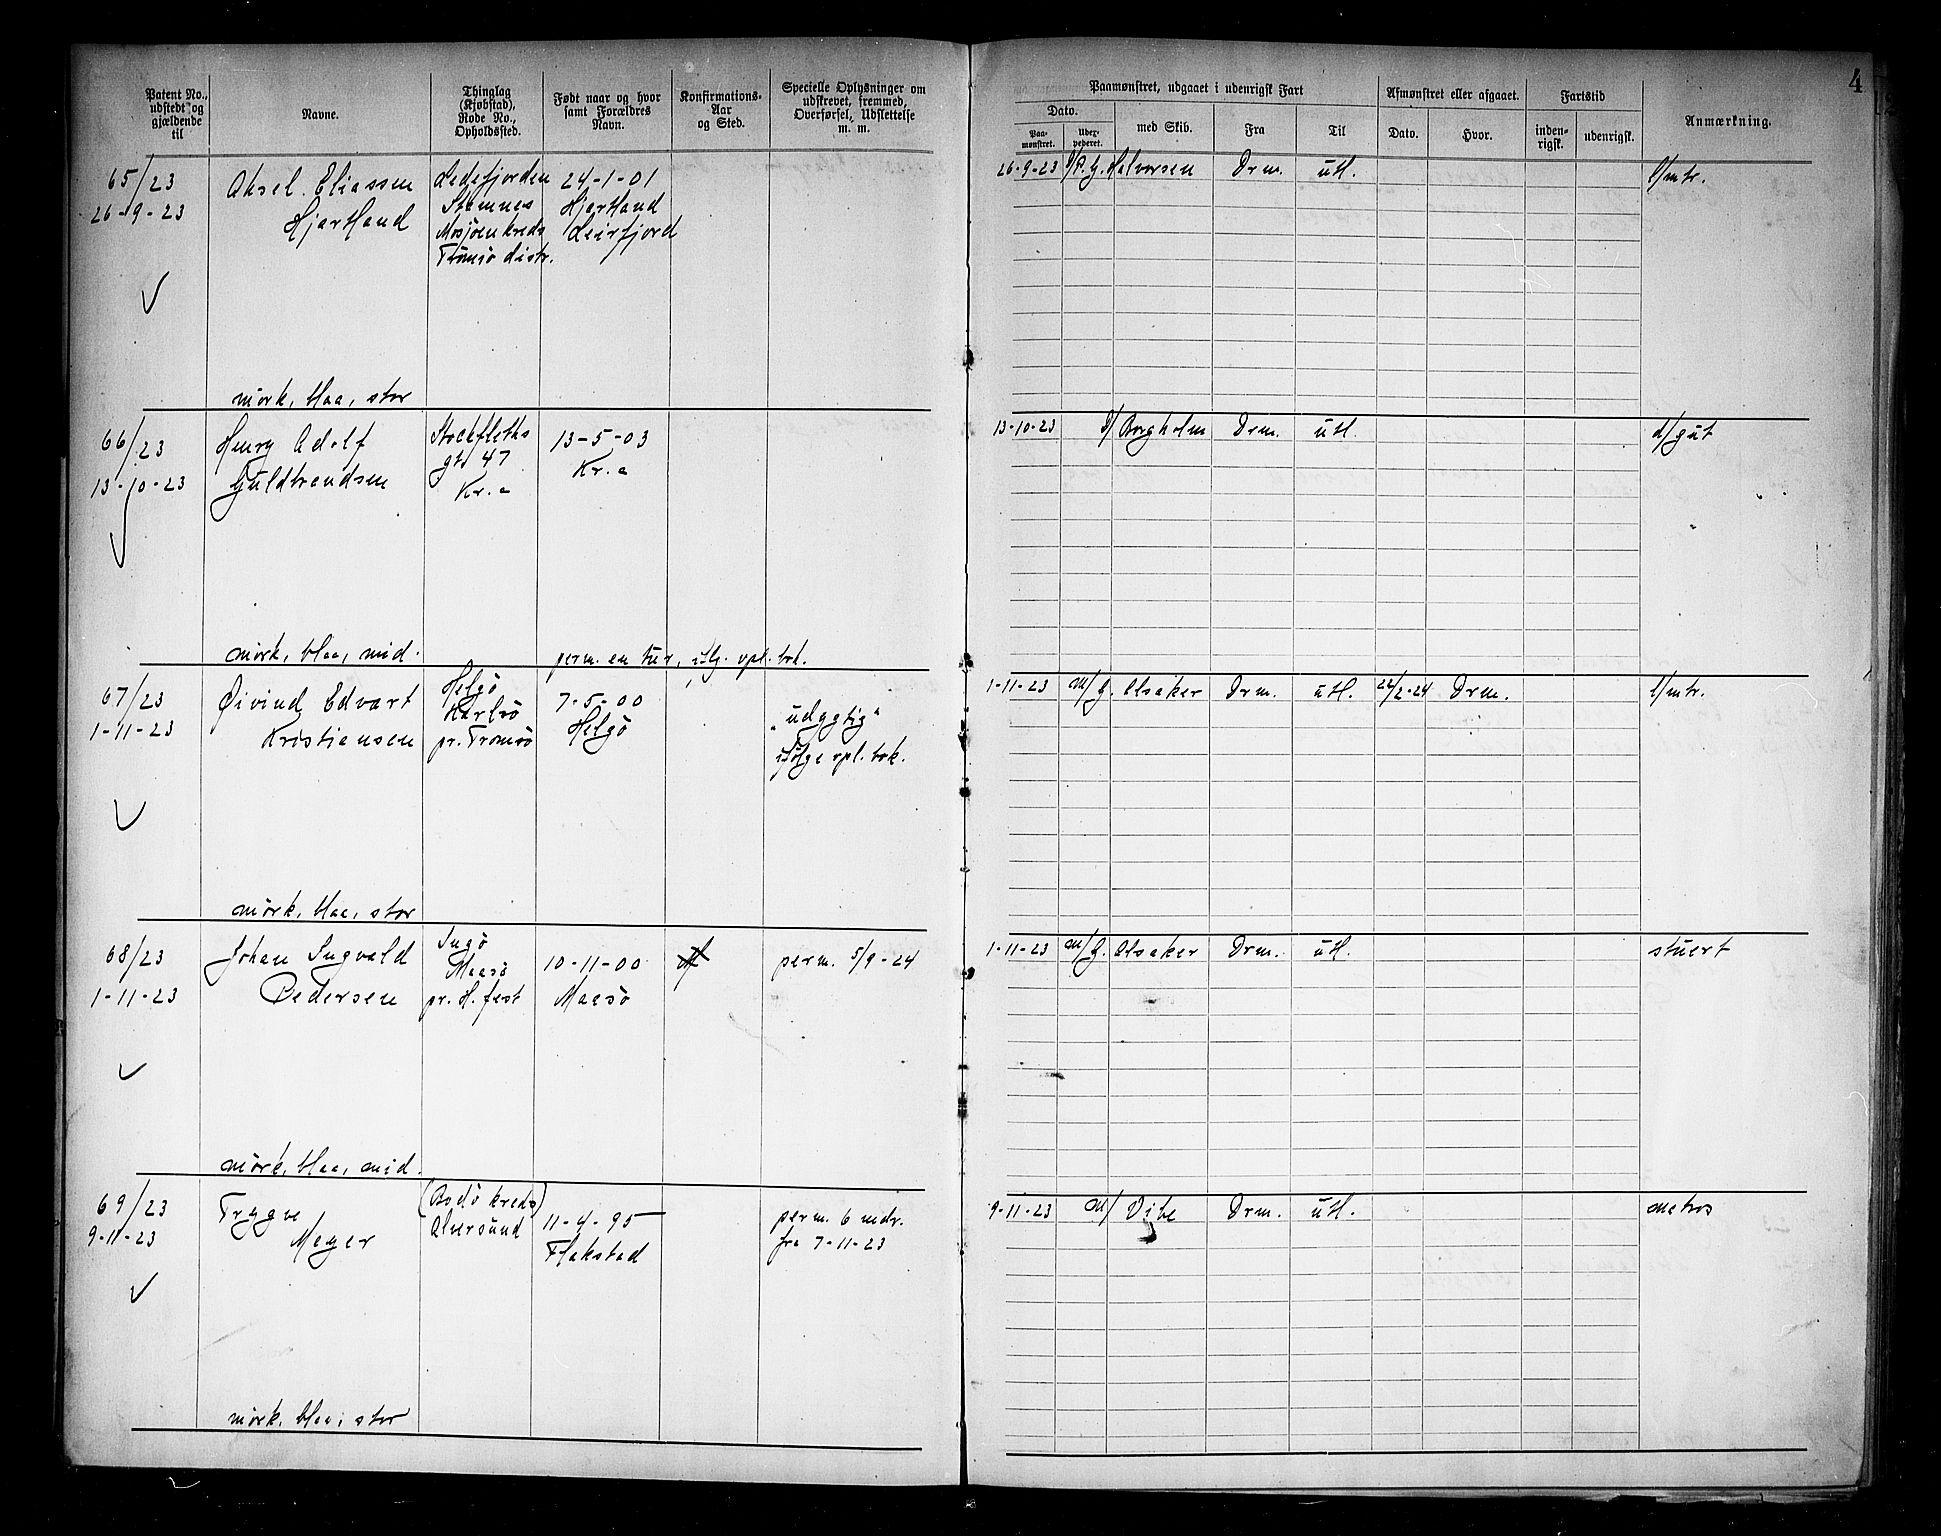 4
Patent No., udstedt og gjældende til
Navne.
Thinglag (Kjøbstad), Rode No., Opholdssted.
Født naar og hvor samt Forældres Navn.
Konfirmations-Aar og Sted.
Specielle Oplysninger om udskrevet, fremmed, Overførsel, Udslettelse m. m.
Paamønstret, udgaaet i udenrigsk Fart
Dato.
Paa-mønstret.
med Skib.
Fra
Til
Afmønstret eller afgaaet.
Dato.
Hvor.
Fartstid
inden-rigsk.
udenrigsk.
Anmærkning.
65/23
26-9-23
Aksel Eliassen
Hjartland
Leirfjorden
Stamnes
Mosjøen kreds
Tromsö distr.
24-1-01
Hjartland
Leirfjord
mörk, blaa, stor
26-9-23 Halvorsen Drm. utl. l/mtr.
66/23
13-10-23
Henry Adolf
Guldbrandsen
Stockfleths
gt. 47
Kr.a
13-5-03
Kr.a
mörk, blaa, mid.
perm. en tur, iflg. opl. bok.
13-10-23 D/ Borgholm Drm. utl. d/gut
67/23
1-11-23
Øivind Edvart
Kristiansen
Helgö
Karlsö
pr. Tromsö
7-5-00
Helgö
"udygtig"
ifölge opl. bok.
mörk, blaa, stor
1-11-23 M/ G. Olsaker Drm. utl. 22/2-24 Drm. l/mtr.
68/23
1-11-23
Johan Ingvald
Pedersen
Ingö
Maasö
pr. H.fest
10-11-00
Maasö
perm. 5/9-24
mörk, blaa, mid.
1-11-23 M/ G. Olsaker Drm. utl. stuert
69/23
9-11-23
Trygve
Meyer
(Bodö kreds)
Qversund
11-4-95
Flakstad
perm. 6 mdr.
fra 7-11-23
mörk, blaa, stor
9-11-23 M/ Vibe Drm. utl. matros